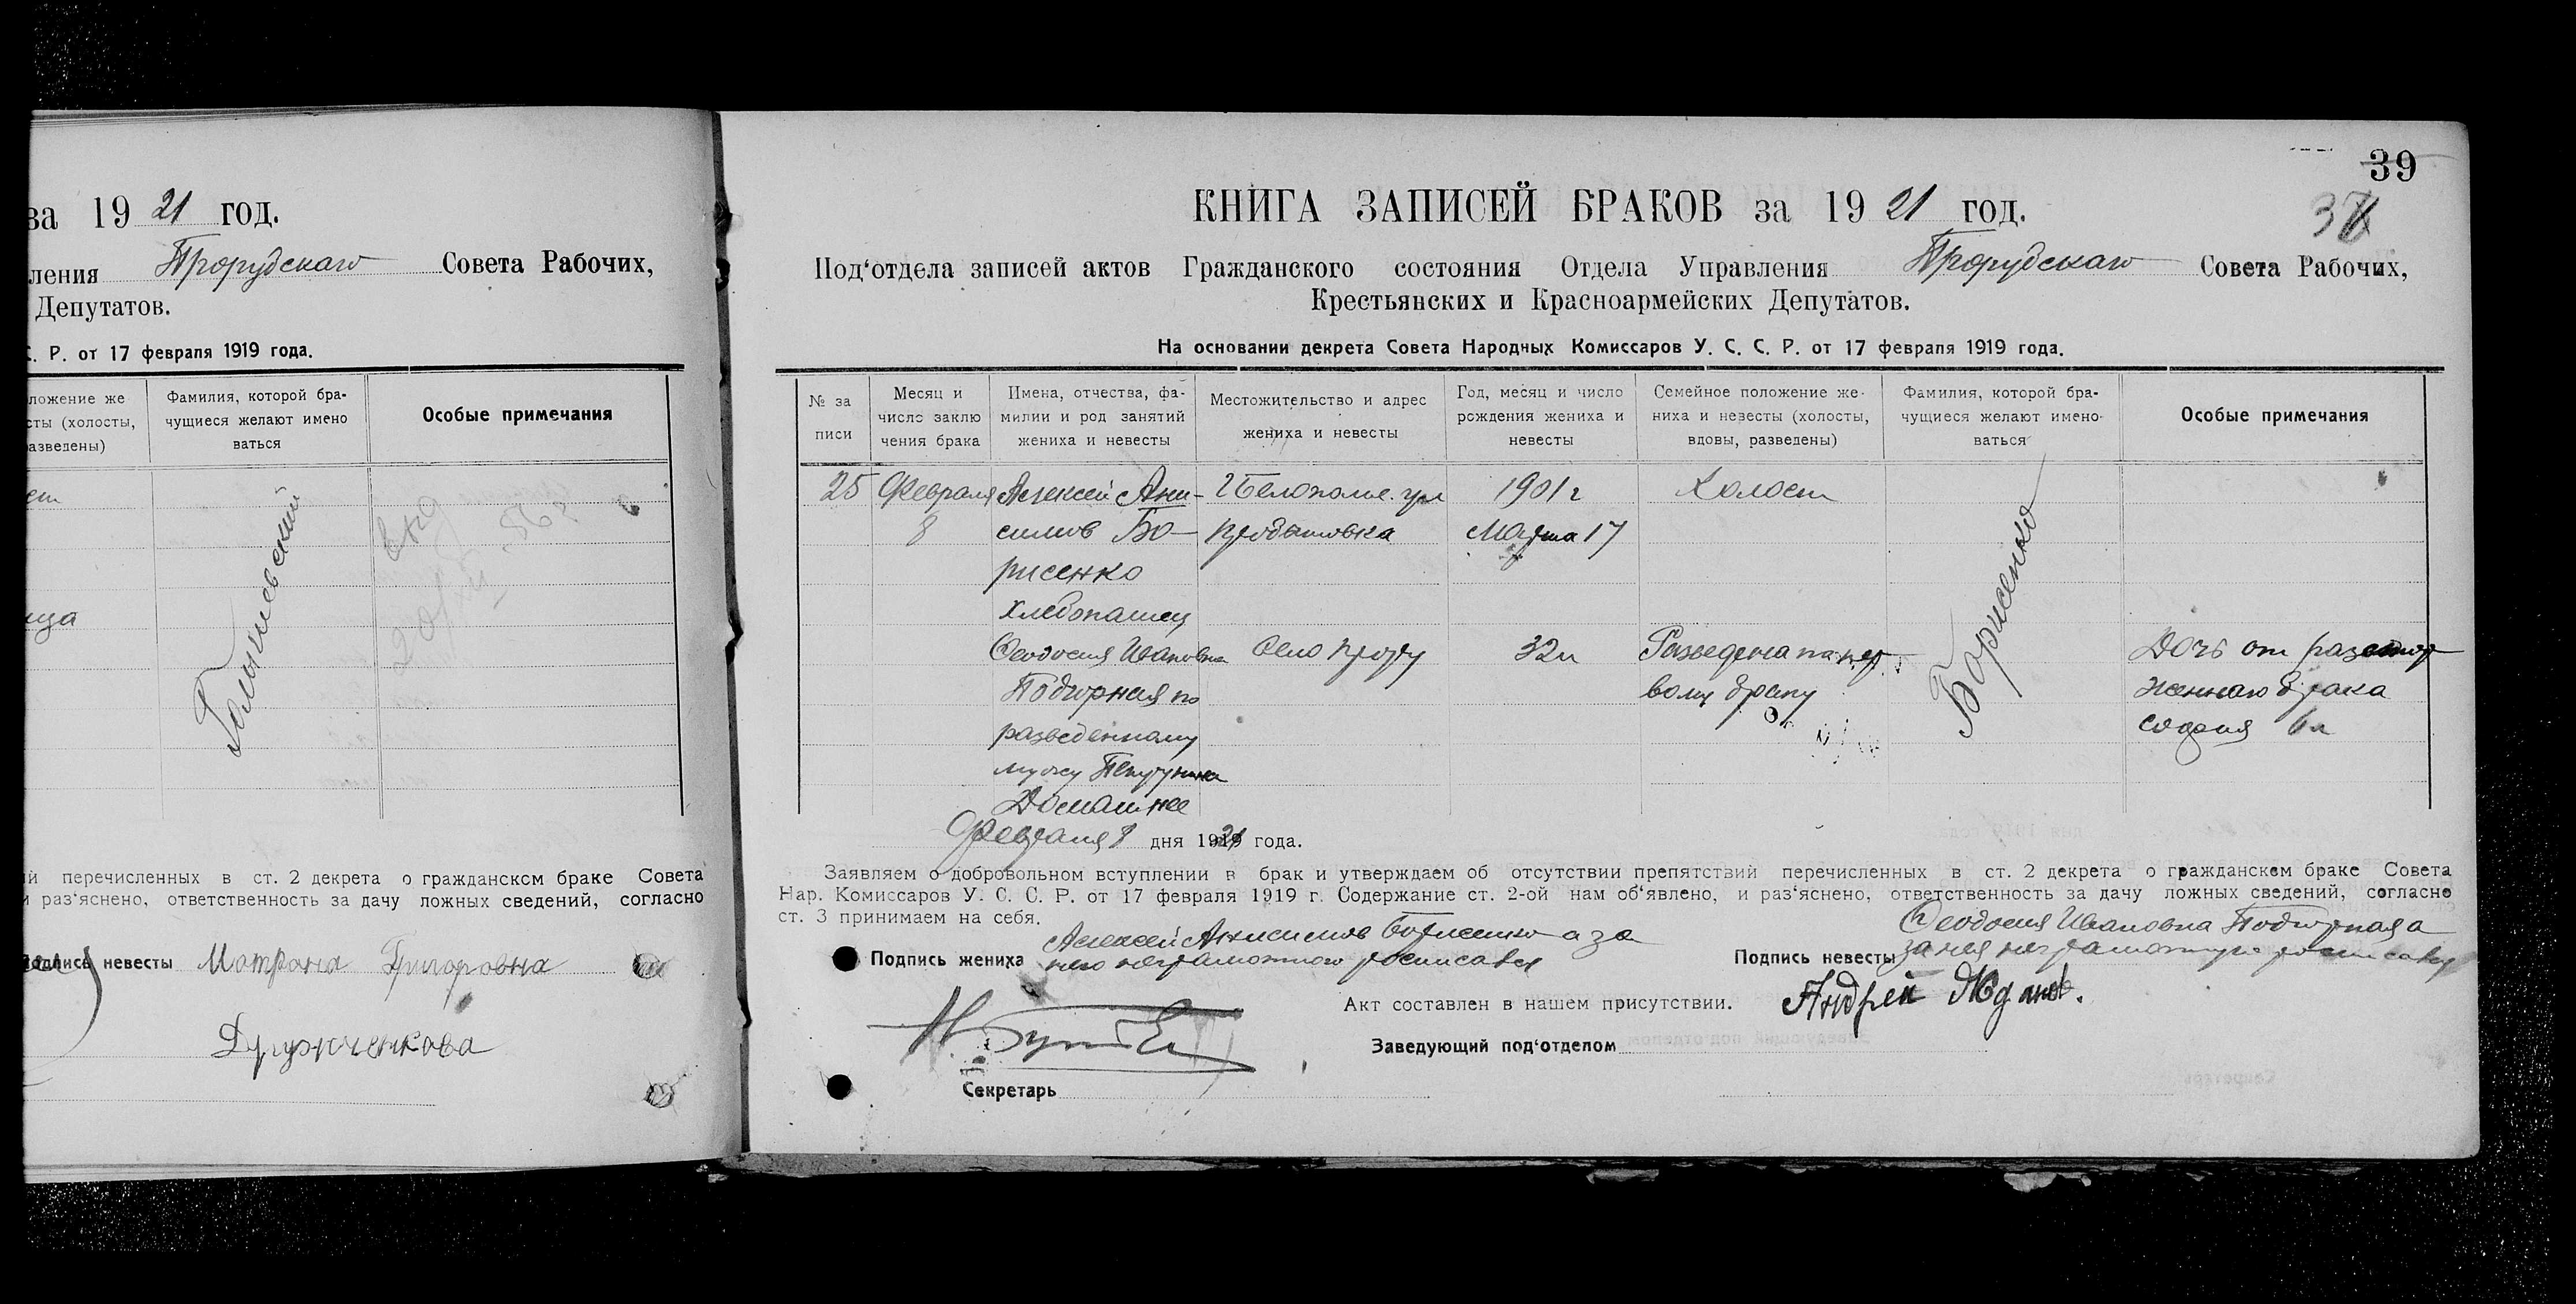 за 1921 год.
ления Прорубскаго Совета Рабочих,
Депутатов.
С. Р. от 17 февраля 1919 года.
ложение же
сты (холосты,
разведены)
Фамилия, которой бра-
чущиеся желают имено
ваться
Особые примечания
Голышевский
й перечисленных в ст. 2 декрета о гражданском браке Совета
и раз'яснено, ответственность за дачу ложных сведений, согласно
Подпись невесты Мотрона Григоровна
Дружченкова
39
КНИГА ЗАПИСЕЙ БРАКОВ за 1921 год.
Под'отдела записей актов Гражданского состояния Отдела Управления Прорубскаго Совета Рабочих,
Крестьянских и Красноармейских Депутатов.
На основании декрета Совета Народных Комиссаров У. С. С. Р. от 17 февраля 1919 года.
№ за
писи
Месяц и
число заклю
чения брака
Имена, отчества, фа-
милии и род занятий
жениха и невесты
Местожительство и адрес
жениха и невесты
Год, месяц и число
рождения жениха и
невесты
Семейное положение же-
ниха и невесты (холосты,
вдовы, разведены)
Фамилия, которой бра-
чущиеся желают имено-
ваться
Особые примечания
25
Февраля
8
Алексей Ани-
симов Бо-
рисенко
Хлебопашец
г Белополье. ул
1901 г
Марта 17
Холост
Феодосия Ивановна
Подгорная по
разведенному
мужу
Домашнее
Село
32 л
Разведена по пер
вому браку
Борисенко
Дочь от растор
женнаго брака
София 6 л
Февраля 8 дня 1921 года.
Заявляем о добровольном вступлении в брак и утверждаем об отсутствии препятствий перечисленных в ст. 2 декрета о гражданском браке Совета
Нар. Комиссаров У. С. С. Р. от 17 февраля 1919 г. Содержание ст. 2-ой нам об'явлено, и раз'яснено, ответственность за дачу ложных сведений, согласно
ст. 3 принимаем на себя.
Подпись жениха Алексей Анисимов Борисенко а за
него неграмотного росписался
Подпись невесты Феодосия Ивановна Подгорная а
за нея неграмотную росписался
Андрей
Акт составлен в нашем присутствии.
Заведующий под'отделом
Секретарь